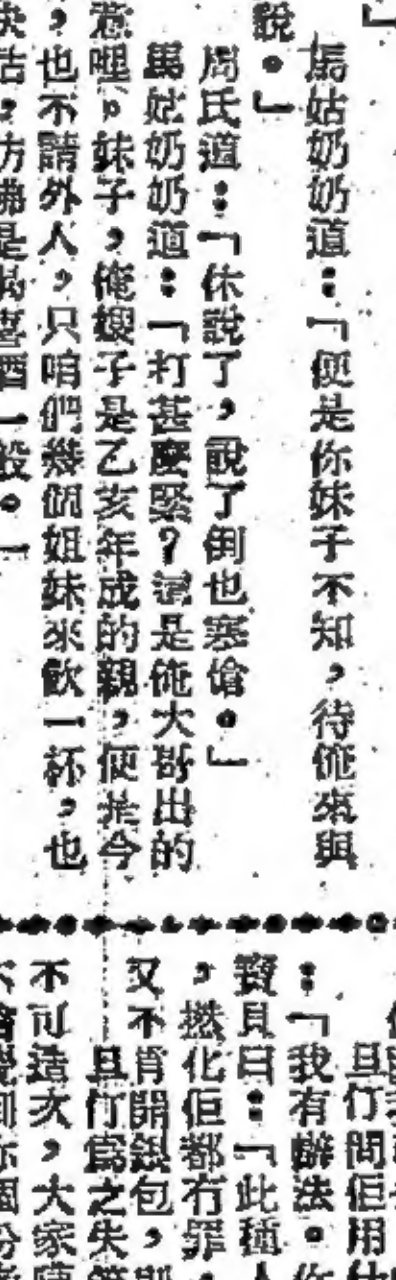 」
馬姑奶奶道：「便是你妹子不知，待俺來與
說。」
周氏道：「休說了，說了倒也寒傖。」
馬姑奶奶道：「打甚麼緊？還是俺大哥出的
意哩。妹子，俺嫂子是乙亥年成的親，便是今
，也不請外人，只咱們幾個姐妹來飲一杯，也
快活，彷彿是喝喜酒一般。」
且竹問佢用
：「我有辦法。
寶貝曰：「此種
，撚化佢都冇罪
又不肯開銀包，
且竹爲之失
不可造次，大家